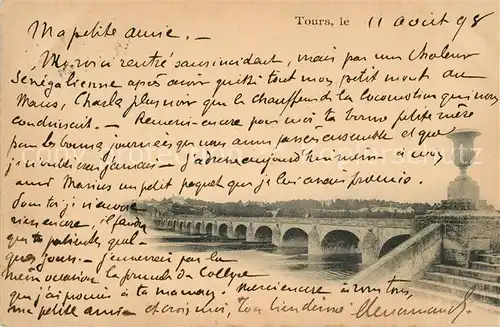 Tours, le 11 août 98
Ma petite amie. —
Me voici rentré sans incident, mais par une chaleur
Sénégalienne après avoir quitté tout mon petit monde au
Mans, plus noir que le chauffeur de la locomotive qui nous
conduisait. — Remerciez encore pour moi ta bonne petite mère
pour les bonnes journées que nous avons passées ensemble et que
je n'oublierai jamais — J'adresse aujourd'hui même à
ami Marius un petit paquet que je lui avais promis.
Dont je n'avais
rien encore, il faudra
que tu patientes quel-
ques jours. — J'enverrai par la
même occasion la formule du
que j'ai promis à ta maman. Merci encore à vous tous,
ma petite amie et crois moi, Ton bien dévoué